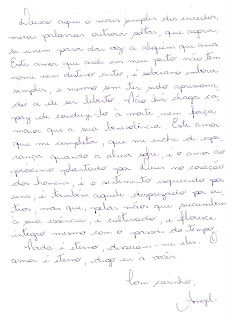 Deixo aqui o mais simples dos enredos,
meras palavras outrora soltas, que agora,
se unem para dar voz a alguem que ama.
Este amor que arde em meu peito não tem
nome nem destino certo, é soberano embora
simples, e mesmo sem ter sido aprisiona-
do a de ser liberto. Não há chaga ca-
paz de conduzi-lo à morte, nem força
maior que a sua benevolência. Este amor
que me completa, que me enche de espe-
rança quando a alma sofre, é o amor ao
próximo plantado por Deus no coração
dos homens, é o sentimento esquecido por
uns, e também aquele desprezado por ou-
tros, mas que, pelas mãos que sucumbem
à sua essência, é cultivado, e floresce
íntegro mesmo com o passar do tempo.
Nada é eterno, disseram-me eles. O
amor é eterno, digo eu a vocês.
Com carinho,
Angel.